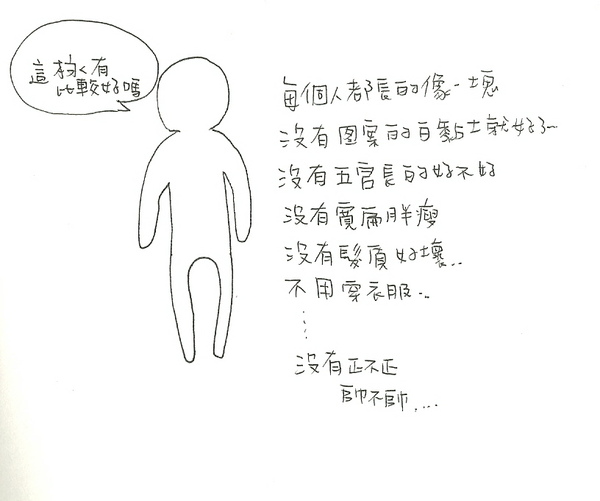 這樣有
比較好嗎
每個人都長的像一塊
沒有圖案的白黏土就好了~
沒有五官長的好不好
沒有寬扁胖瘦
沒有髮質好壞..
不用穿衣服..
⋮
沒有正不正
帥不帥....